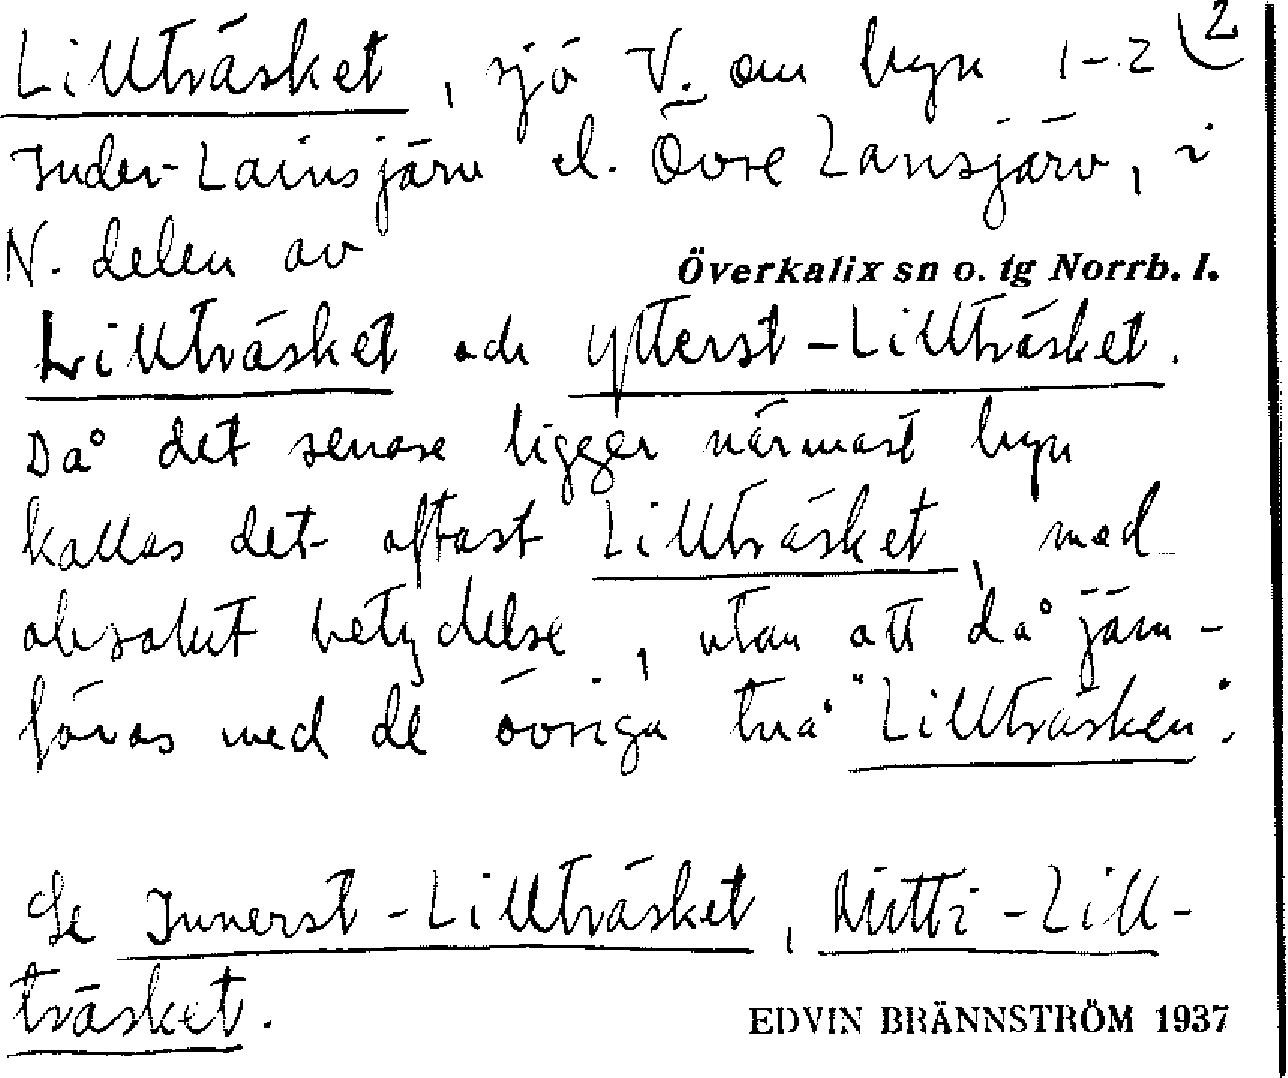 Lillträsket, sjö V. om byn 1-2 2
Inder-Lainsjärv el. Övre Lansjärv, i
N. delen av
Överkalix sn o. tg Norrb. l.
Lillträsket och Ytterst-Lillträsket.
Då det senare ligger närmast byn
kallas det oftast Lillträsket, med
absolut betydelse, utan att då jäm-
föras med de övriga två "Lillträsken".
Se Innerst-Lillträsket, Mitti-Lill-
träsket.
EDVIN BRÄNNSTRÖM 1937